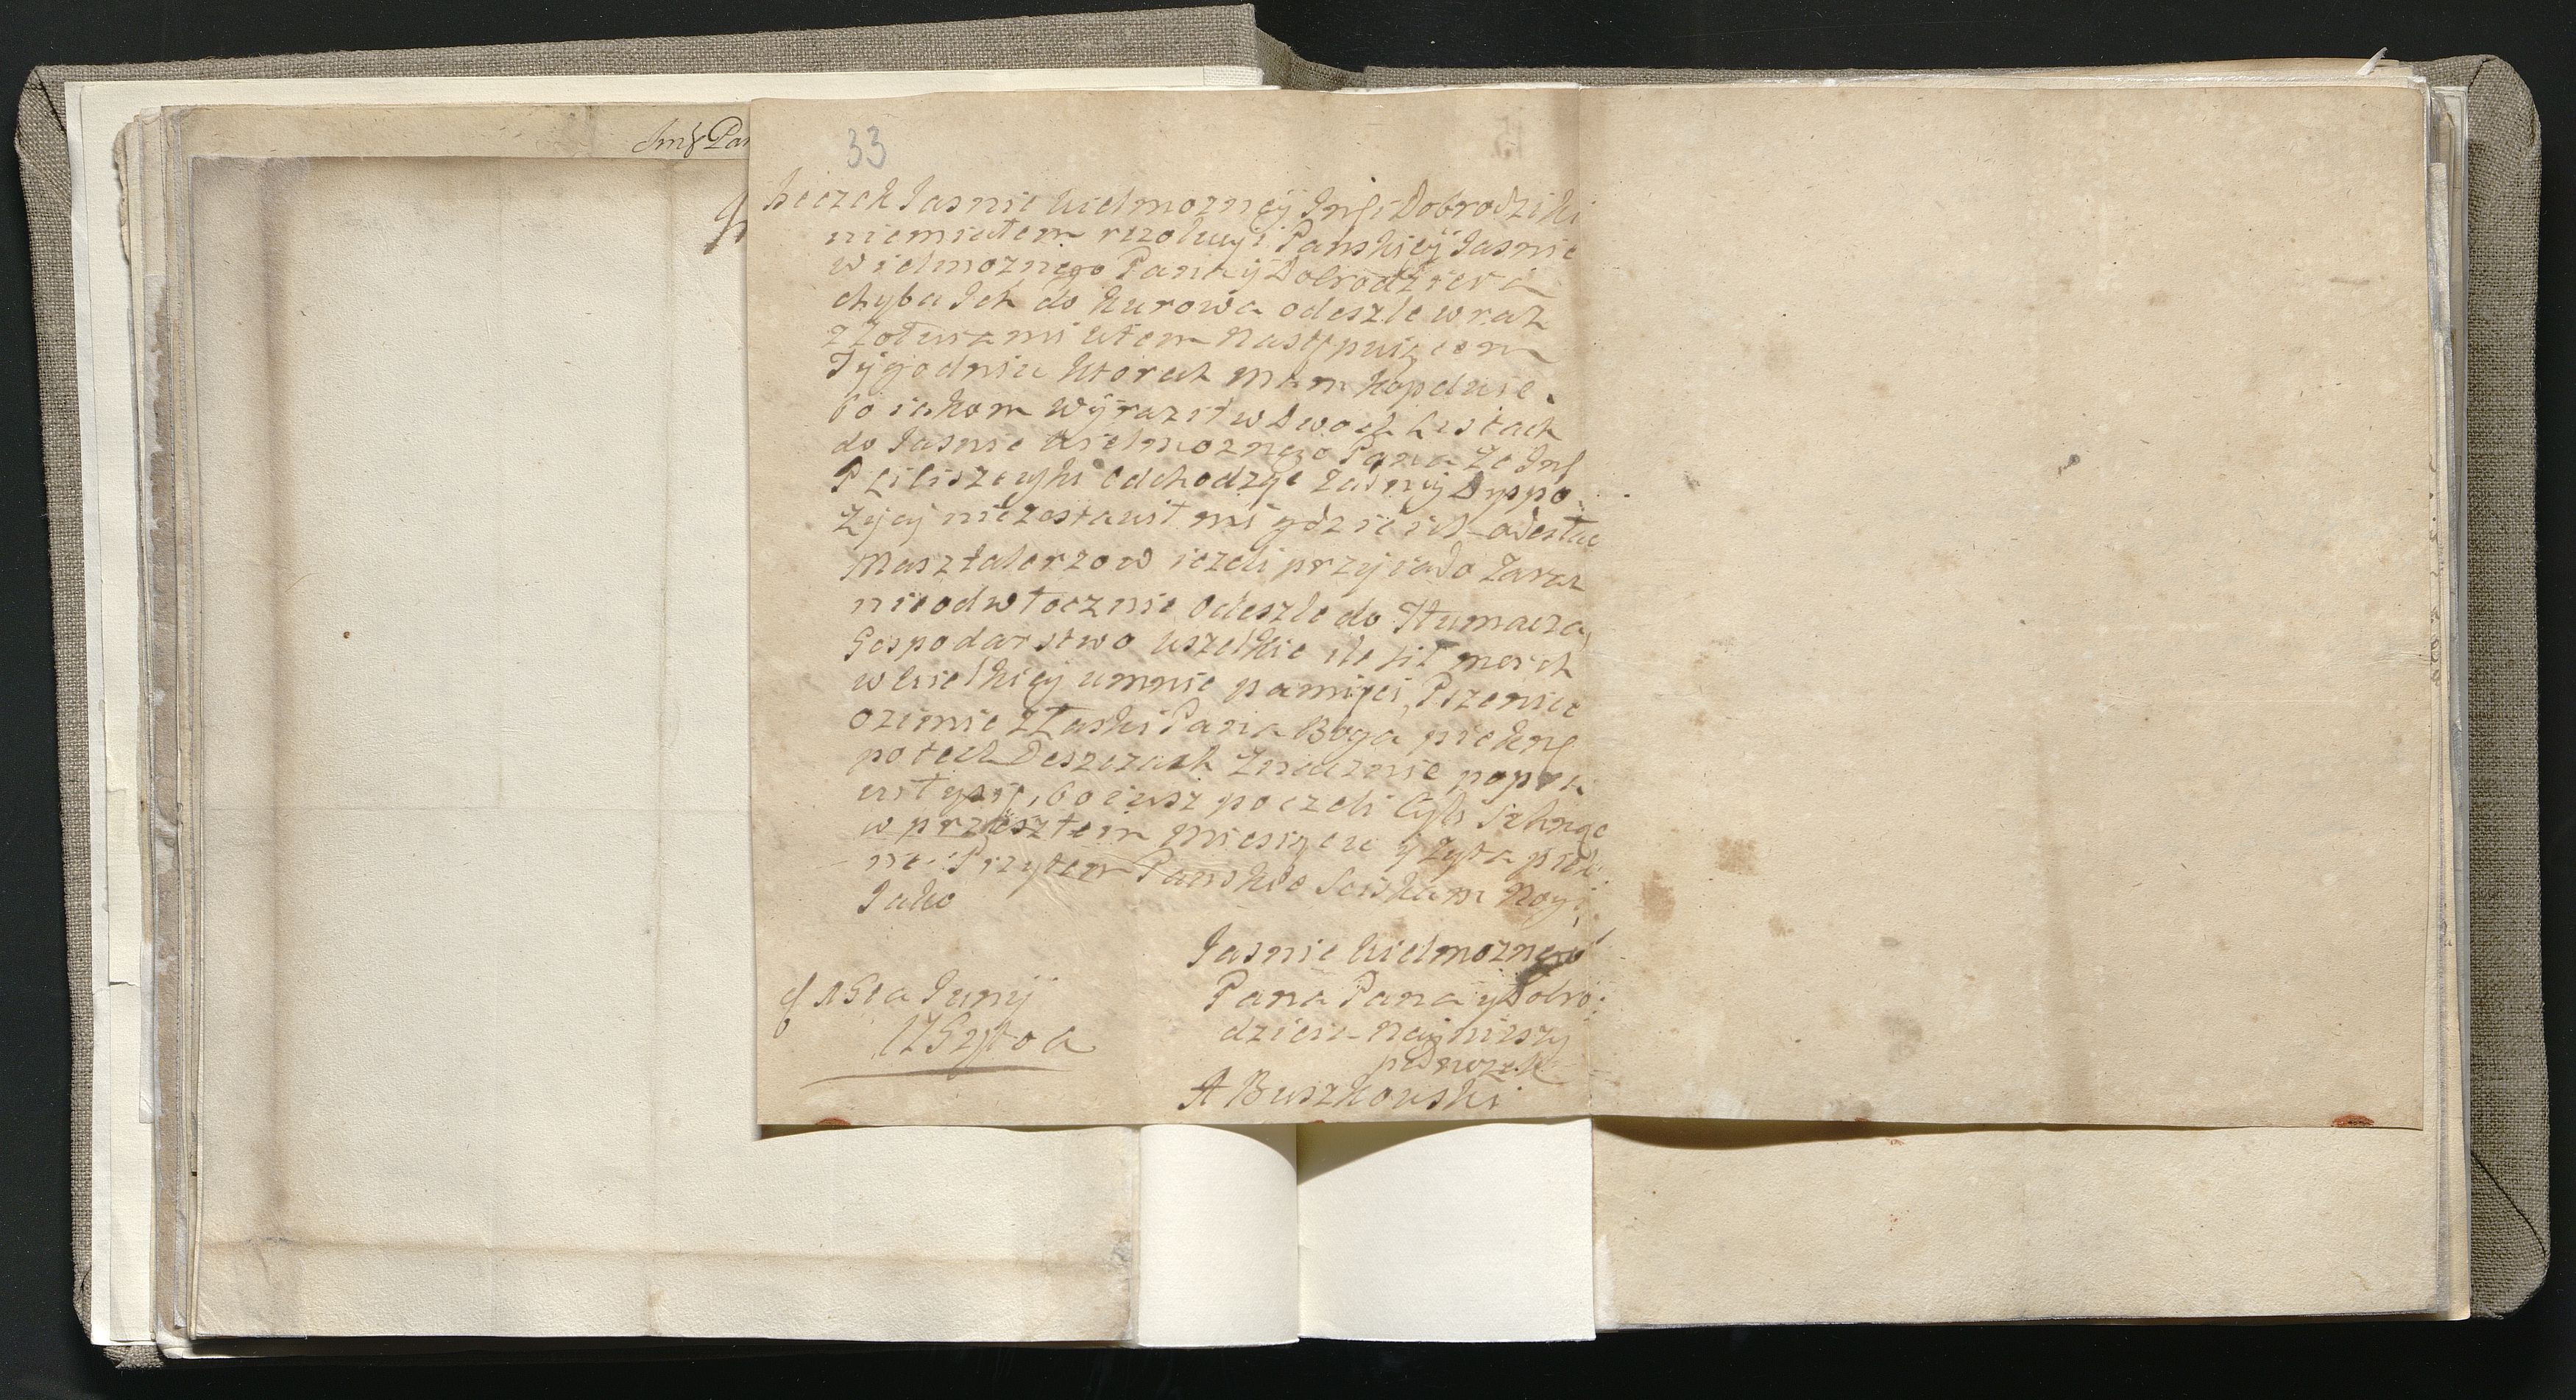 Jmć Pan
33
Leczek Jasnie Wielmozney Jmsci Dobrodziki
niemiałem rezolucyi Panskiey Jasnie
wielmoznego Pana y Dobrodzieia
chyba Ich do Kurowa odeszle wraz
z Zołwiami wtem następuiącem
Tygodniu ktorech mam kop dwie.
bo iakom wyraził w Dwoch Listach
do Jasnie Wielmoznego Pana Ze Jmć
P odchodząc Zadney Dyspo
zycy niezostawił mi gdzie ich odesłac
Masztalerzow iezeli przyiado Zaraz
nieodwłocznie odeszle do Tłumacza,
Gospodarstwo wszelkie ile sił moich
w wielkiey umnie pamięci, Pszenice
ozimie z Łaski Pana Boga piekne
potech Deszczach Znacznie popra
wiły się, bo iusz poczeli byli schnąc
w przeszłem miesiącu y Zyta piek
ne. Przytem Panskie sciskam nogi,
Jako
Jasnie Wielmoznego
Pana Pana y Dobro
dzieia naynizszy
podnozek
A Buszkowski
d 15ta Juny